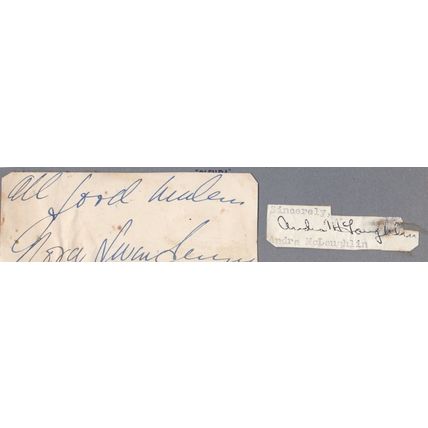 All good wishes
Nora Swinburne
Sincerely,
Andra McLaughlin
Andra McLaughlin